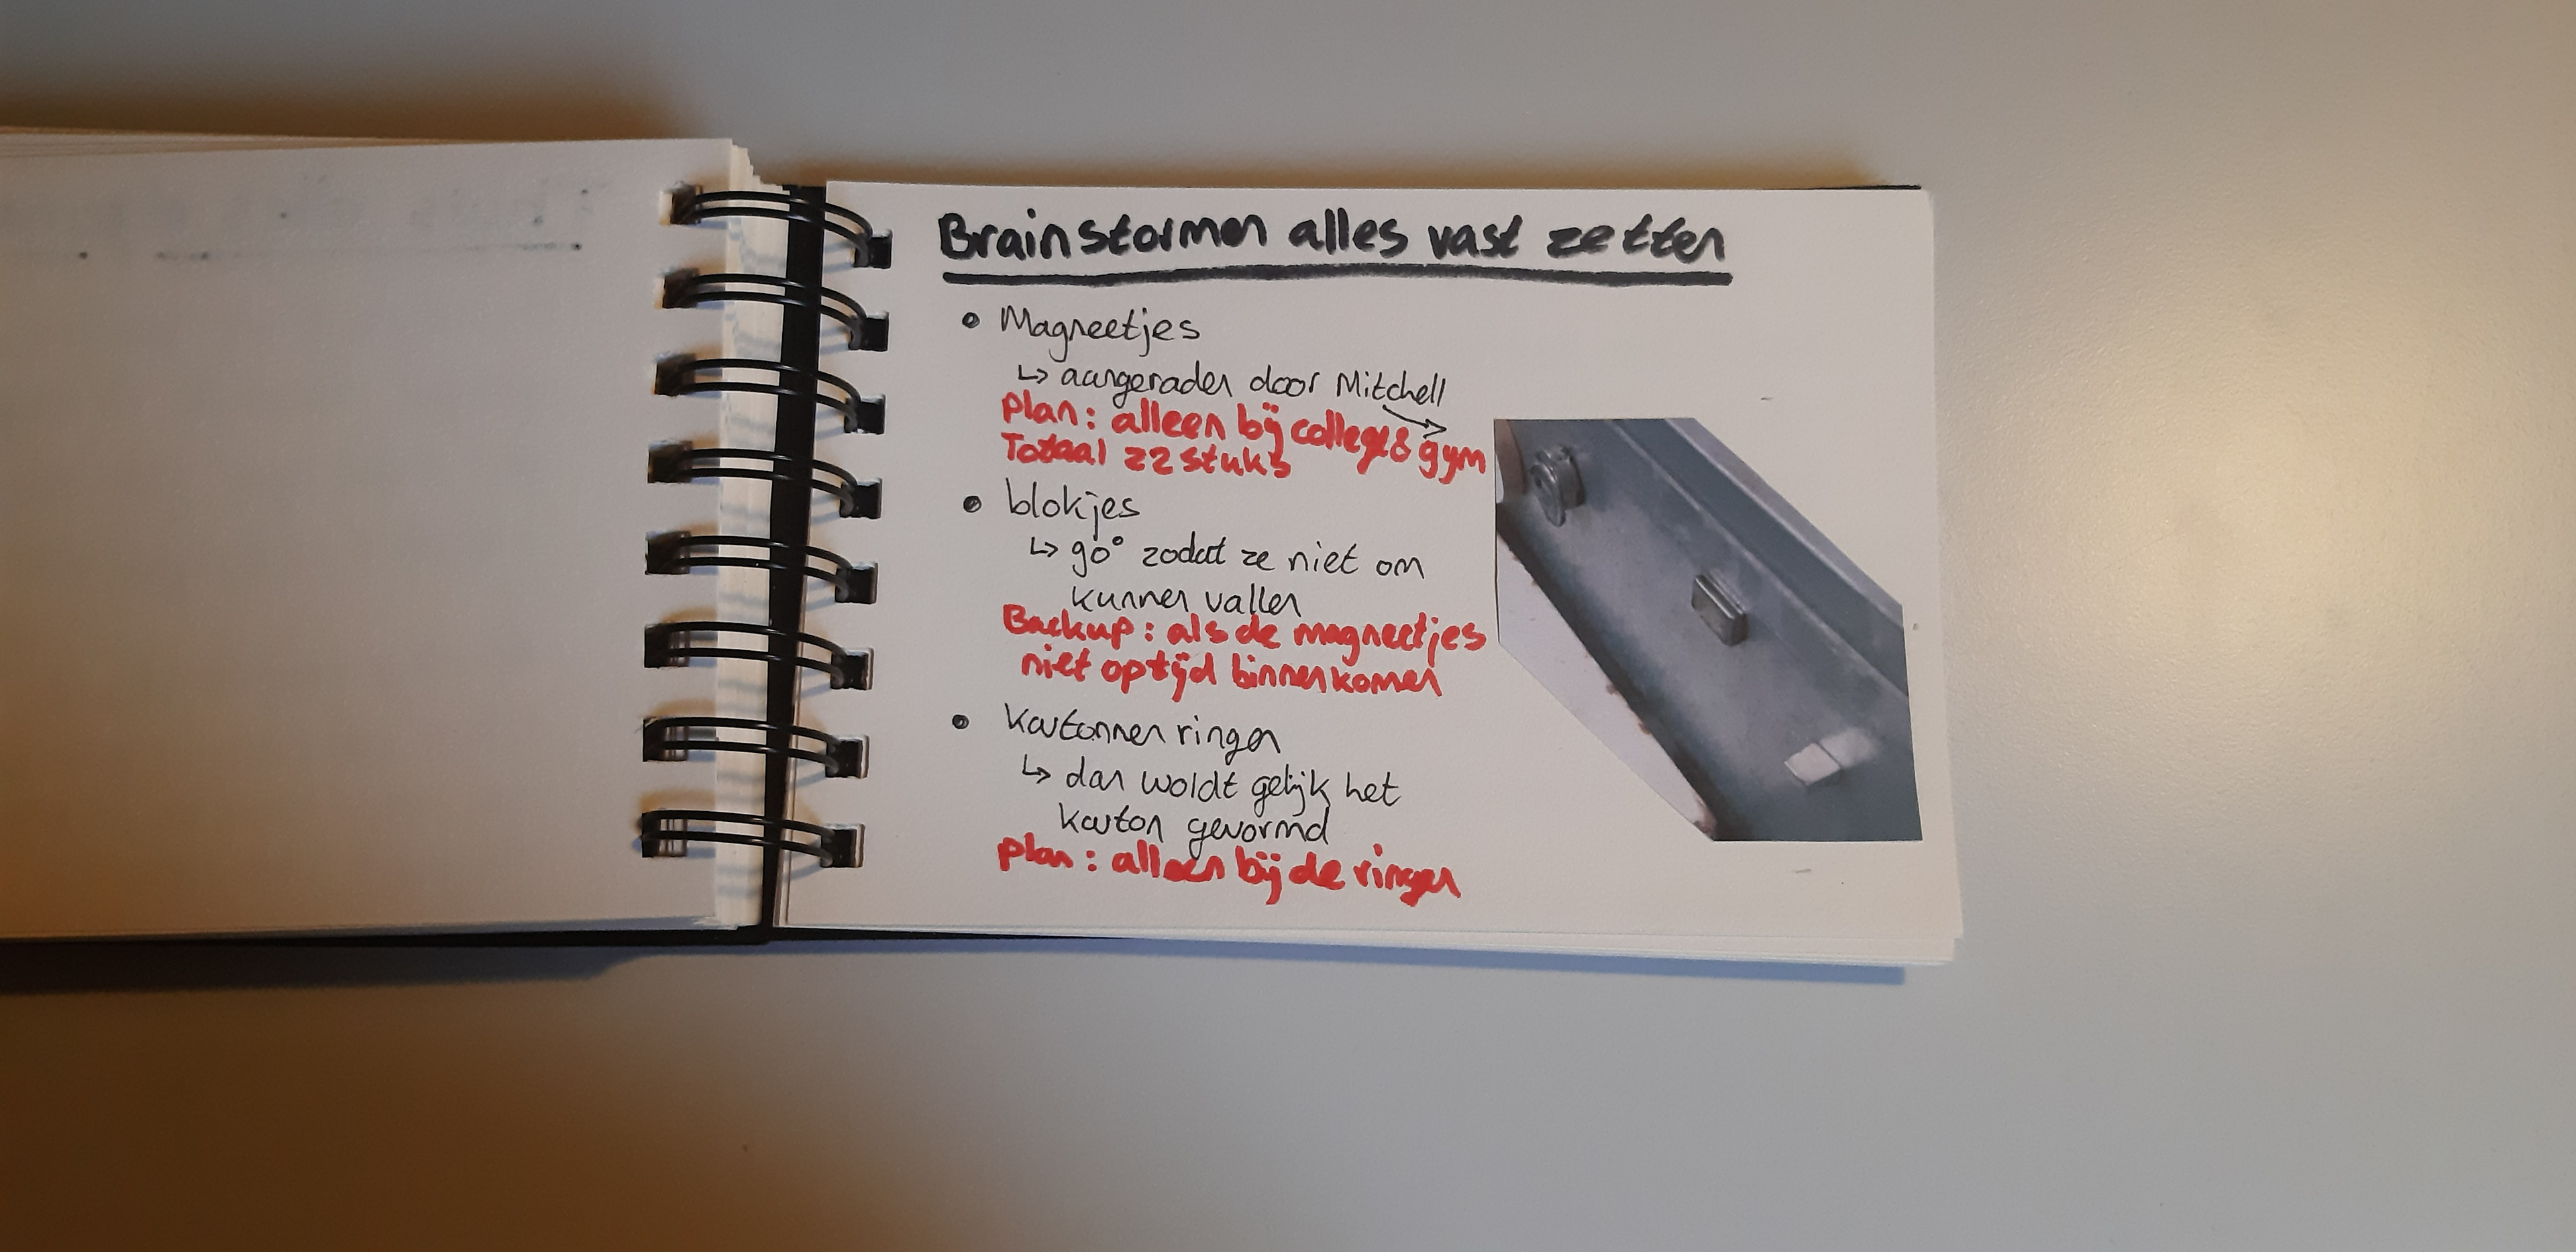 Brainstormen alles vast zetten
• Magneetjes
↳ aangeraden door Mitchell
plan: alleen bij college & gym
Totaal 22 stuks
• blokjes
↳ 90° zodat ze niet om
kunnen vallen
Backup: als de magneetjes
niet op tijd binnenkomen
• Kartonnen ringen
↳ dan woldt gelijk het
karton gevormd
plan: alleen bij de ringen